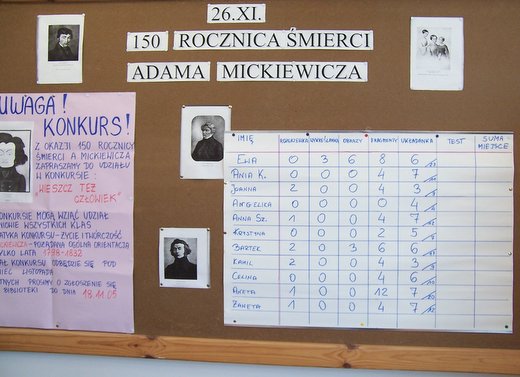 26.XI.
150 ROCZNICA ŚMIERCI
ADAMA MICKIEWICZA
UWAGA!
KONKURS!
Z OKAZJI 150 ROCZNICY
ŚMIERCI A MICKIEWICZA
ZAPRASZAMY DO UDZIAŁU
W KONKURSIE:
"WIESZCZ TEŻ
CZŁOWIEK"
KONKURSIE MOGĄ WZIĄĆ UDZIAŁ
WSZYSTKICH KLAS
KONKURSU - ŻYCIE I TWÓRCZOŚĆ
MICKIEWICZA - POŻĄDANA OGÓLNA ORIENTACJA
TYLKO LATA 1798-1832
KONKURSU ODBĘDZIE SIĘ POD
LISTOPADA
PROSIMY O ZGŁOSZENIE SIĘ
BIBLIOTEKI DO DNIA 18.11.05
IMIĘ OBRAZY FRAGMENTY UKŁADANKA TEST SUMA MIEJSCE
EWA 0 3 6 8 6
ANIA K. 0 0 0 4 7
JOANNA 2 0 0 4 3
ANGELICA 0 0 0 0 4
ANNA SZ. 1 0 0 4 7
KRYSTYNA 0 0 0 2 5
BARTEK 2 0 3 6 6
KAMIL 2 0 0 4 3
CELINA 0 0 0 4 6
ANETA 1 0 0 12 7
ŻANETA 1 0 0 4 7